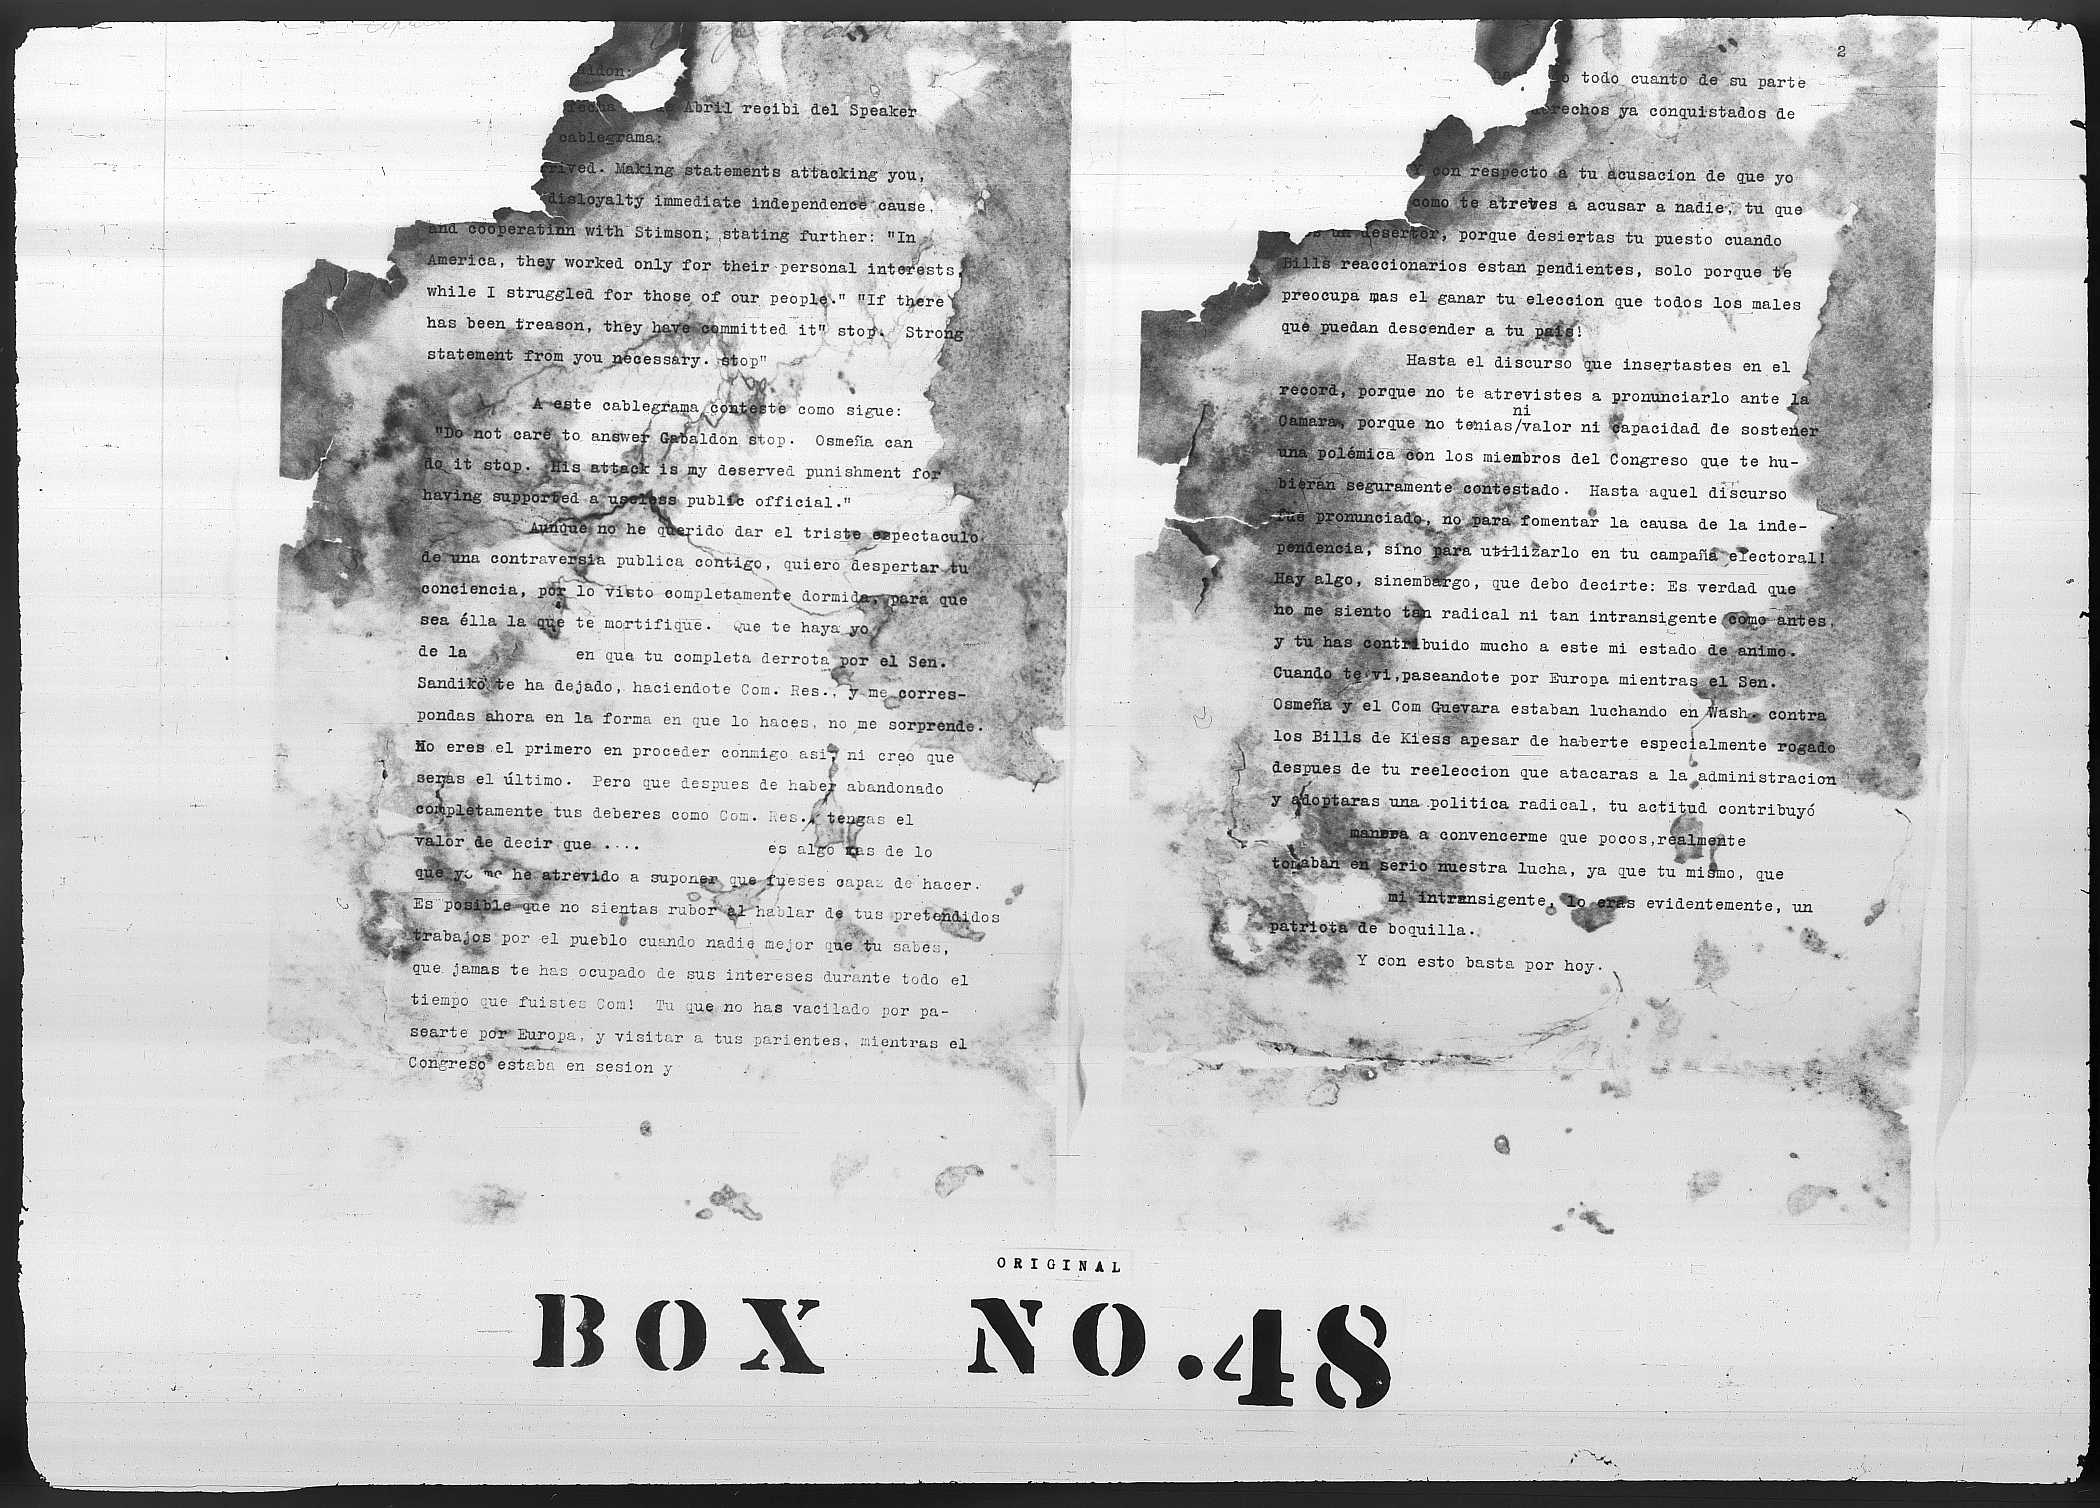 aldon:
fecha Abril recibi del Speaker
cablegrama:
rived. Making statements attacking you,
disloyalty immediate independence cause.
and cooperatinn with Stimson; stating further: "In
America, they worked only for their personal interests,
while I struggled for those of our people." "If there
has been treason, they have committed it" stop. Strong
statement from you necessary. stop"
A este cablegrama conteste como sigue:
"Do not care to answer Gabaldon stop. Osmeña can
do it stop. His attack is my deserved punishment for
having supported a useless public official."
Aunque no he querido dar el triste espectaculo
de una contraversia publica contigo, quiero despertar tu
conciencia, por lo visto completamente dormida, para que
sea élla la que te mortifique. Que te haya yo
de la en que tu completa derrota por el Sen.
Sandiko te ha dejado, haciendote Com. Res., y me corres-
pondas ahora en la forma en que lo haces, no me sorprende.
No eres el primero en proceder conmigo asi, ni creo que
seras el último. Pero que despues de haber abandonado
completamente tus deberes como Com. Res., tengas el
valor de decir que .... es algo mas de lo
que yo me he atrevido a suponer que fueses capaz de hacer.
Es posible que no sientas rubor al hablar de tus pretendidos
trabajos por el pueblo cuando nadie mejor que tu sabes,
que jamas te has ocupado de sus intereses durante todo el
tiempo que fuistes Com! Tu que no has vacilado por pa-
searte por Europa, y visitar a tus parientes, mientras el
Congreso estaba en sesion y
2
todo cuanto de su parte
erechos ya conquistados de
Y con respecto a tu acusacion de que yo
como te atreves a acusar a nadie, tu que
un desertor, porque desiertas tu puesto cuando
Bills reaccionarios estan pendientes, solo porque te
preocupa mas el ganar tu eleccion que todos los males
que puedan descender a tu pais!
Hasta el discurso que insertastes en el
record, porque no te atrevistes a pronunciarlo ante la
ni
Camara, porque no tenias/valor ni capacidad de sostener
una polémica con los miembros del Congreso que te hu-
bieran seguramente contestado. Hasta aquel discurso
fue pronunciado, no para fomentar la causa de la inde-
pendencia, sino para utilizarlo en tu campaña electoral!
Hay algo, sinembargo, que debo decirte: Es verdad que
no me siento tan radical ni tan intransigente como antes,
y tu has contribuido mucho a este mi estado de animo.
Cuando te vi,paseandote por Europa mientras el Sen.
Osmeña y el Com Guevara estaban luchando en Wash. contra
los Bills de Kiess apesar de haberte especialmente rogado
despues de tu reeleccion que atacaras a la administracion
y adoptaras una politica radical, tu actitud contribuyó
manera a convencerme que pocos,realmente
tomaban en serio nuestra lucha, ya que tu mismo, que
mi intransigente, lo eras evidentemente, un
patriota de boquilla.
Y con esto basta por hoy.
ORIGINAL
BOX NO.48